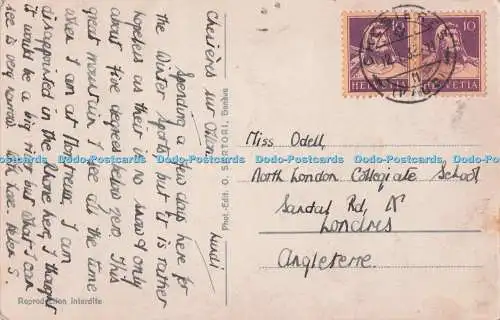 Chesières sur Ollon
Lundi
Spending a few days here for
the Winter Sports but it is rather
hopeless as their is no snow & only
about five degrees below zero. This
great mountain I see all the time
when I am at Montreux. I am
disappointed in the Rhone here, I thought
it would be a big river but what I can
see is very narrow. With love. Helen S.
Reproduction interdite
Phot.-Edit: O. SARTORI, Genève
10
HELVETIA
10
HELVETIA
Miss Odell,
North London Collegiate School
Sandal Rd, N
Londres
Angleterre.
Dodo-Postcards Dodo-Postcards Dodo-Postcards Dodo-Postcards Dodo-Postcards Dodo-Postcards